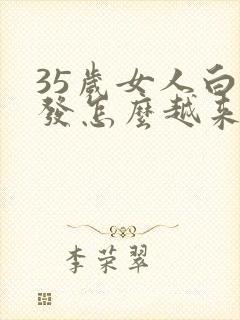 35歲女人白
發怎麼越來
李荣翠